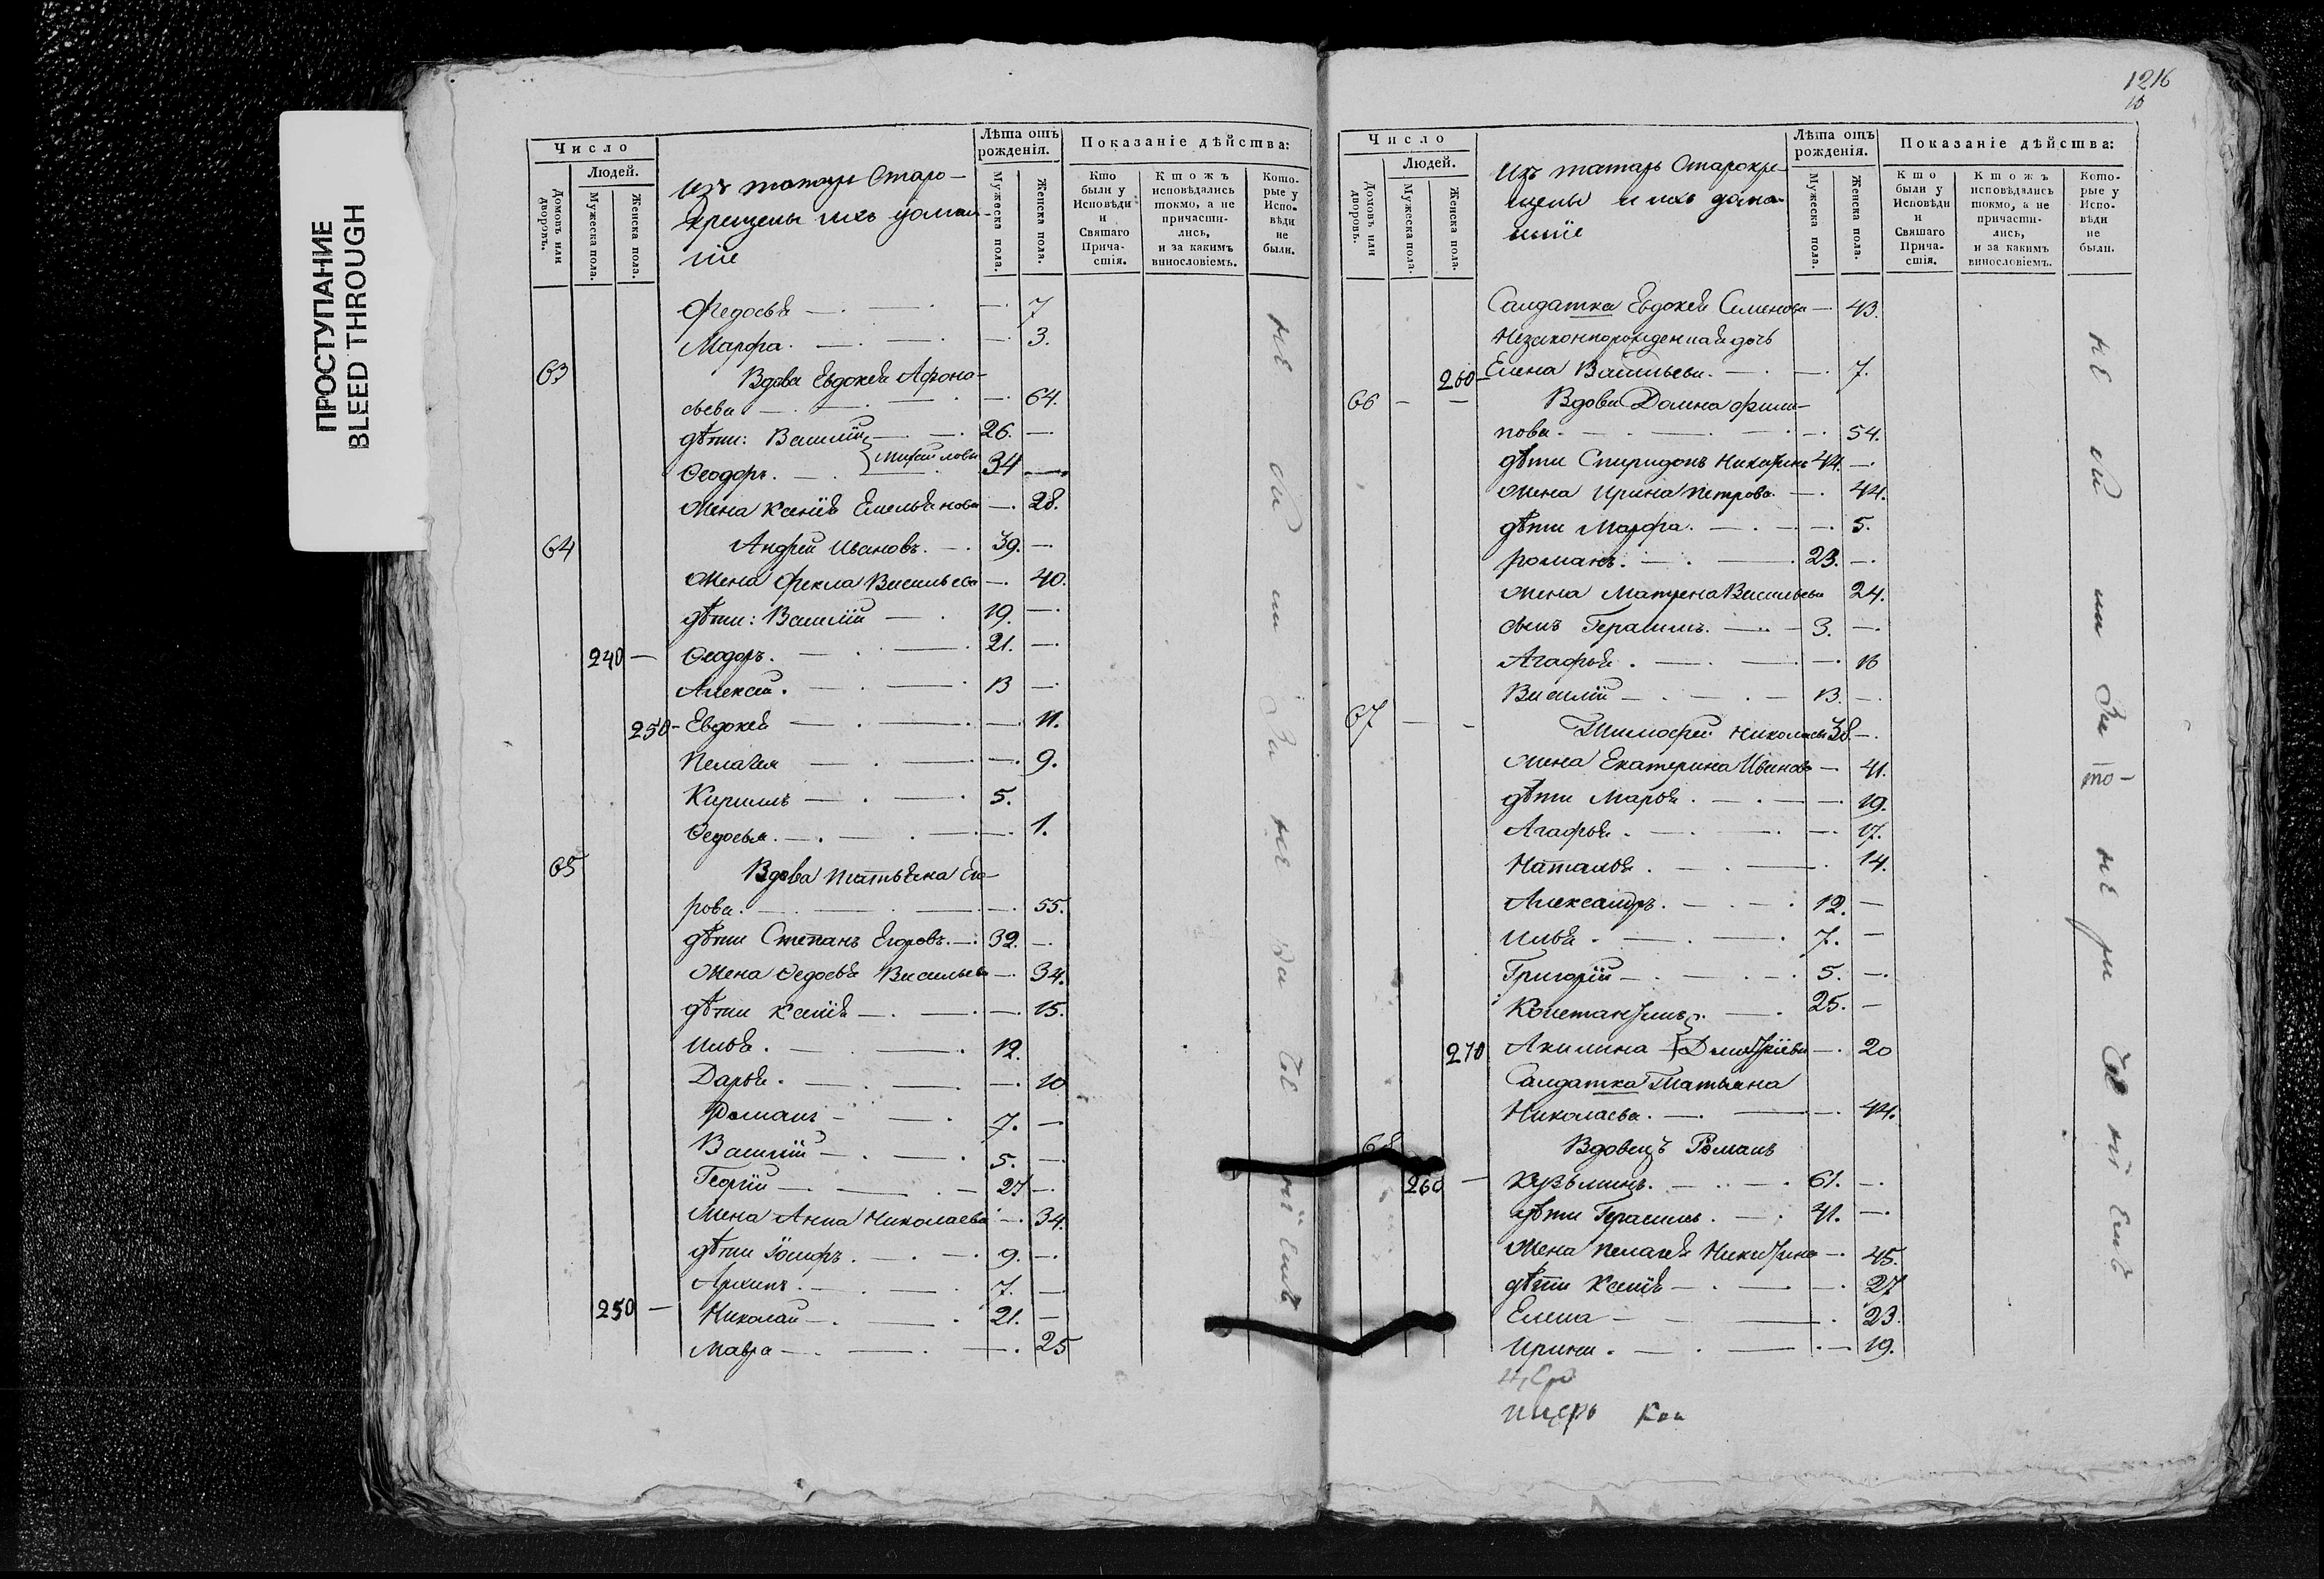 ПРОСТУПАНИЕ
BLEED THROUGH
Число
Людей.
Домовъ или дворовъ.
Мужеска пола.
Женска пола.
Изъ татаръ Старо-
крещены ихъ домаш-
ніе
Лѣта отъ рожденія.
Мужеска пола.
Женска пола.
Показаніе дѣйства:
Кто были у Исповѣди и Святаго Прича-стія.
Ктожъ исповѣдались токмо, а не причасти-лись, и за какимъ винословіемъ.
Кото-рые у Испо-вѣди не были.
Федосья — 7
Марфа. — 3.
63 Вдова Евдокея Афона-
сьева — 64.
дѣти: Василій 26. —
Михайловы
Ѳеодоръ. 34 —
жена Ксенія Емельянова — 28.
64 Андрей Ивановъ. 39. —
жена Фекла Васильева — 40.
дѣти: Василій 19. —
240 — Ѳеодоръ. 21. —
Алексѣй. 13 —
250 — Евдокея — 11.
Пелагея — 9.
Кирилъ 5.
Ѳедосья. — 1.
65 Вдова Татьяна Его-
рова. — 55.
дѣти Степанъ Егоровъ. 32. —
жена Ѳедосья Васильева — 34.
дѣти Ксенія — 15.
Илья. 12.
Дарья. — 10
Романъ 7. —
Василій 5. —
Георгій 27 —
жена Анна Николаева — 34.
дѣти Іосифъ. 9. —
Архипъ. 7. —
250 — Николай 21. —
Мавра — 25
1216
Число
Людей.
Домовъ или дворовъ.
Мужеска пола.
Женска пола.
Изъ татаръ Старокре-
щены и ихъ дома-
шніе
Лѣта отъ рожденія.
Мужеска пола.
Женска пола.
Показаніе дѣйства:
Кто были у Исповѣди и Святаго Прича-стія.
Ктожъ исповѣдались токмо, а не причасти-лись, и за какимъ винословіемъ.
Кото-рые у Испо-вѣди не были.
Салдатка Евдокея Семенова — 43.
Незаконнорожденная дочь
260 — Елена Васильева. — 7.
66 Вдова Домна Фили-
пова. — 54.
дѣти Спиридонъ Никитинъ 44. —
жена Ирина Петрова. — 44.
дѣти Марфа. — 5.
Романъ. 23. —
жена Матрена Васильева 24.
сынъ Герасимъ. 3. —
Агафья. — 16
Василій 13. —
67 Тимофей Николаевъ 38. —
жена Екатерина Иванова — 41.
дѣти Марья. — 19.
Агафья. — 17.
Наталья. 14.
Александръ. 12. —
Илья. 7. —
Григорій 5. —
Константинъ. 25. —
270 Акилина Дмитріевы — 20
Салдатка Татьяна
Николаева. — 44.
68 Вдовецъ Романъ
260 — Кузьминъ. 61. —
дѣти Герасимъ. 41. —
жена Пелагея Никитина — 45.
дѣти Ксенія — 27
Елена — 23.
Ирина. — 19.